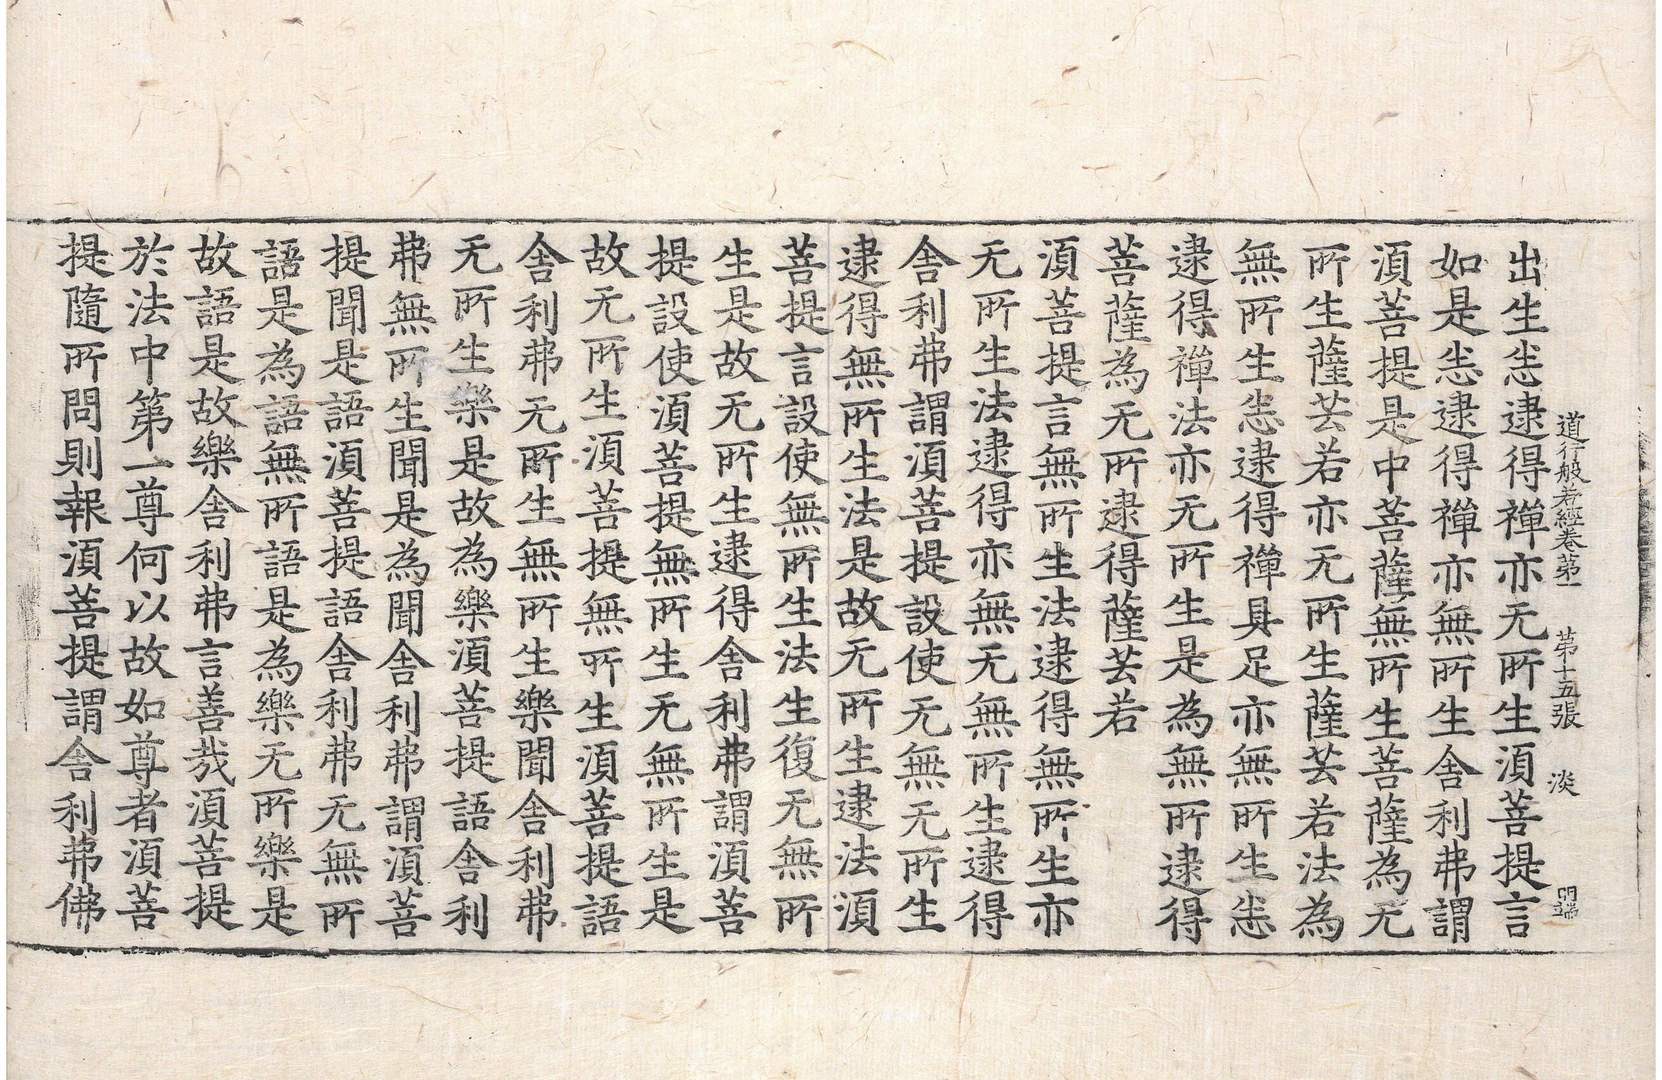 道行般若經卷第一 第十五張 淡
出生悉逮得禪亦无所生須菩提言
如是悉逮得禪亦無所生舍利弗謂
須菩提是中菩薩無所生菩薩為无
所生薩芸若亦无所生薩芸若法為
無所生悉逮得禪具足亦無所生悉
逮得禪法亦无所生是為無所逮得
菩薩為无所逮得薩芸若
須菩提言無所生法逮得無所生亦
无所生法逮得亦無无無所生逮得
舍利弗謂須菩提設使无無无所生
逮得無所生法是故无所生逮法須
菩提言設使無所生法生復无無所
生是故无所生逮得舍利弗謂須菩
提設使須菩提無所生无無所生是
故无所生須菩提無所生須菩提語
舍利弗无所生無所生樂聞舍利弗
无所生樂是故為樂須菩提語舍利
弗無所生聞是為聞舍利弗謂須菩
提聞是語須菩提語舍利弗无無所
語是為語無所語是為樂无所樂是
故語是故樂舍利弗言善哉須菩提
於法中第一尊何以故如尊者須菩
提隨所問則報須菩提謂舍利弗佛